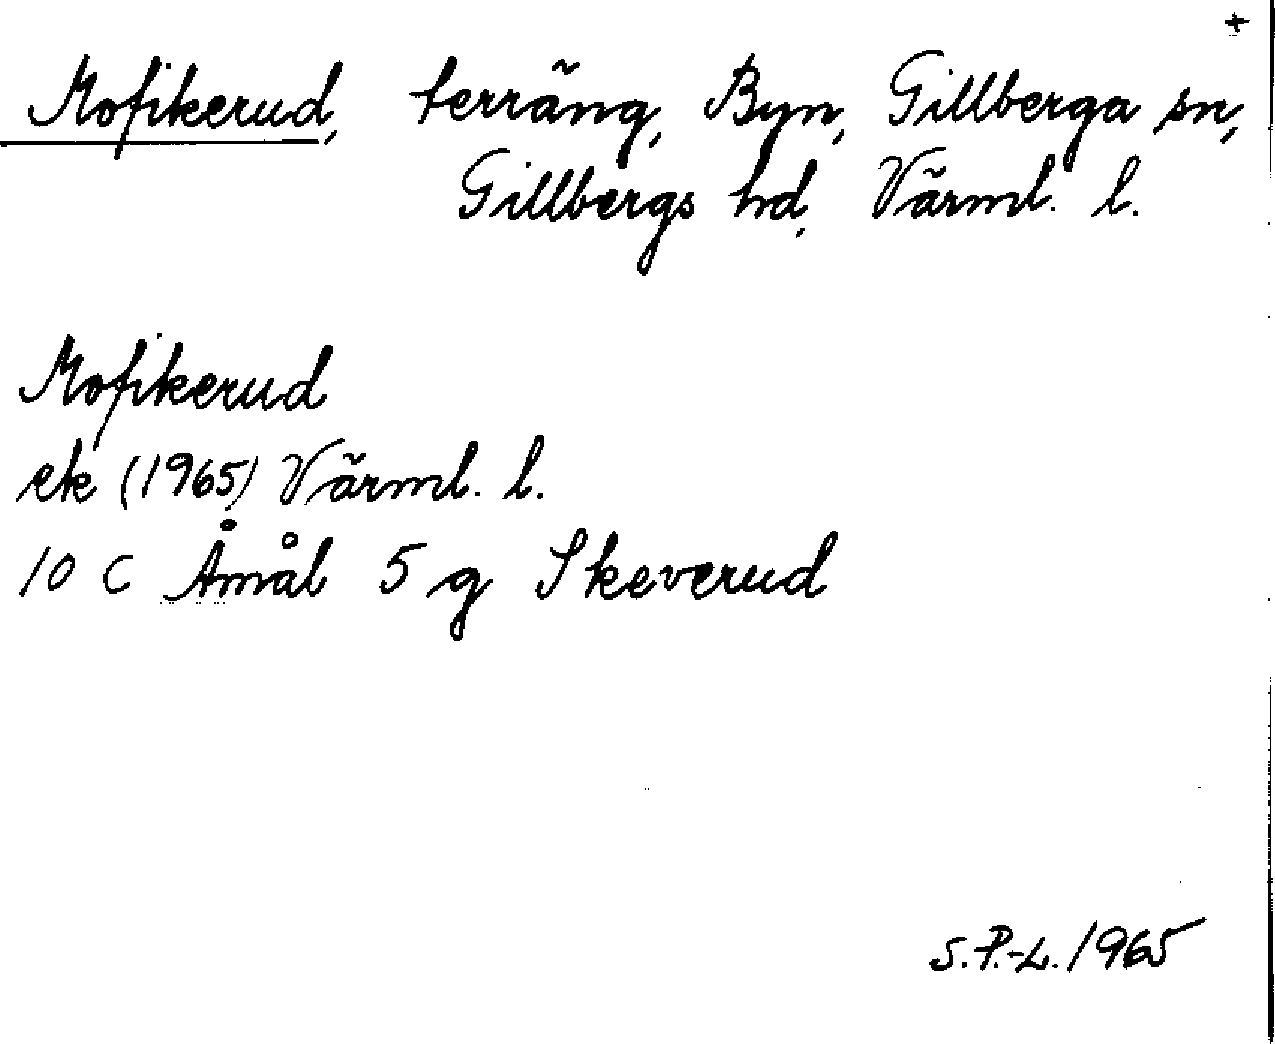 +
Mofikerud, terräng, Byn, Gillberga sn,
Gillbergs hd, Värml. l.
Mofikerud
ek (1965) Värml. l.
10 C Åmål 5 g Skeverud
S.P.-L. 1965